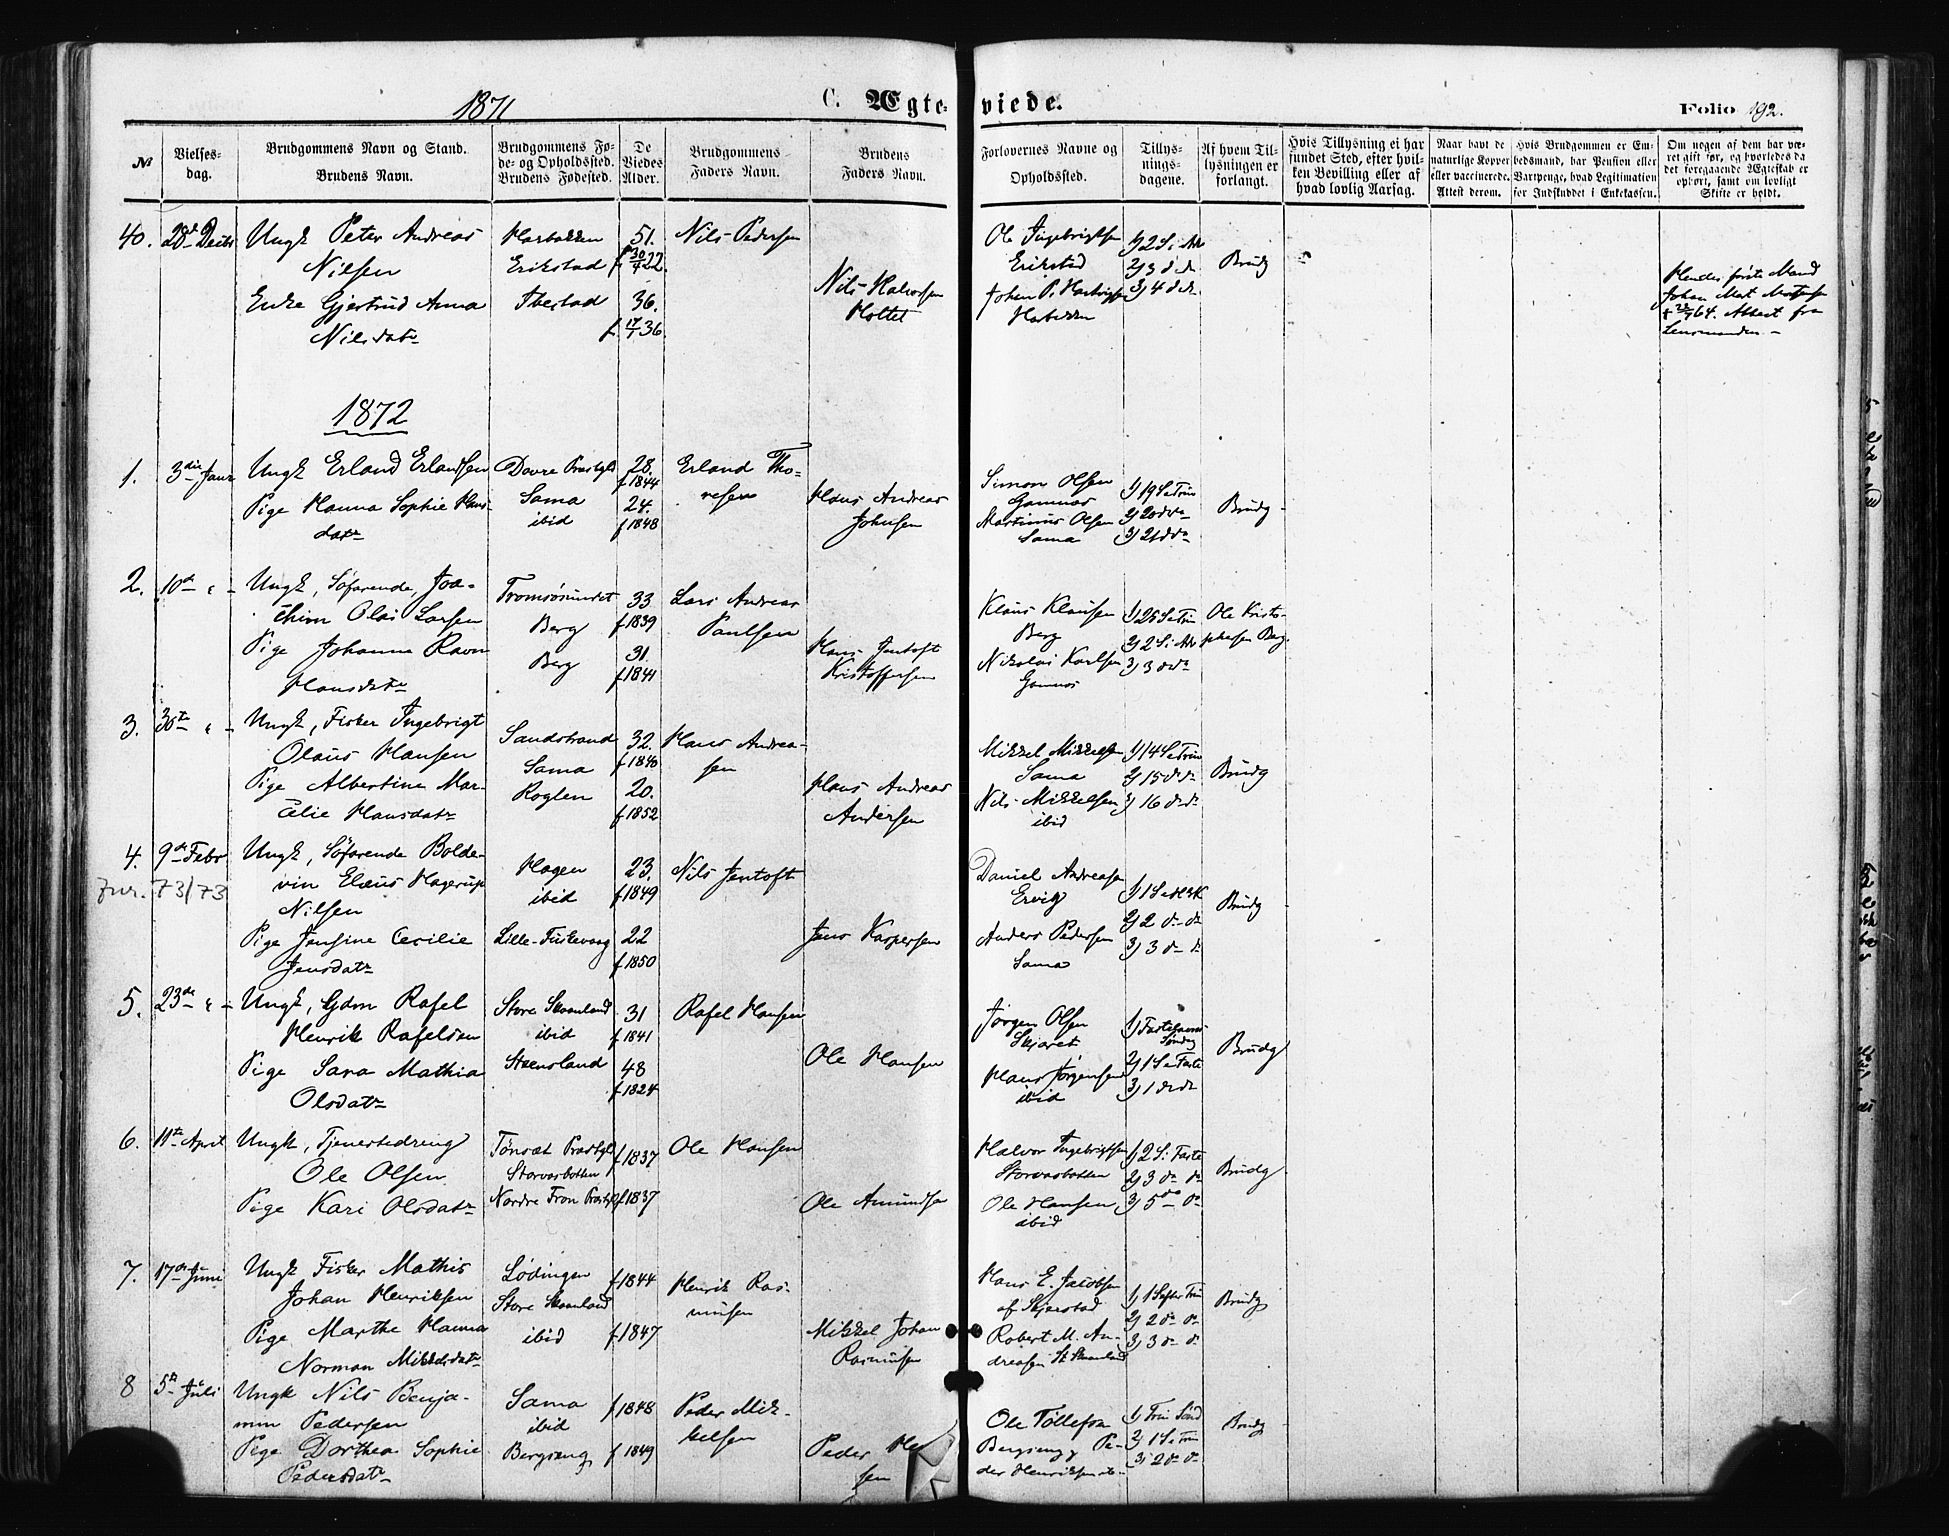 1871
C. Ægte-
viede.
Folio 192.
No
Vielses-
dag.
Brudgommens Navn og Stand.
Brudens Navn.
Brudgommens Fø-
de- og Opholdssted.
Brudens Fødested.
De
Viedes
Alder.
Brudgommens
Faders Navn.
Brudens
Faders Navn.
Forlovernes Navne og
Opholdssted.
Tillys-
nings-
dagene.
Af hvem Til-
lysningen er
forlangt.
Hvis Tillysning ei har
fundet Sted, efter hvil-
ken Bevilling eller af
hvad lovlig Aarsag.
Naar havt de
naturlige Kopper
eller vaccinerede.
Attest derom.
Hvis Brudgommen er Em-
bedsmand, har Pension eller
Vartpenge, hvad Legitimation
for Indskuddet i Enkekassen.
Om nogen af dem har væ-
ret gift før, og hvorledes da
det foregaaende Ægteskab er
ophørt, samt om lovligt
Skifte er holdt.
40.
28de Decbr
Ungk Peter Andreas
Nilsen
Enke Gjertrud Anna
Nilsdatr
Harbakken
Erikstad
Ibestad
51.
f 30/4 22.
36.
f. 17/1 36.
Nils Pedersen
Nils Halvorsen
Holtet
Ole Ingebrigtsen
Erikstad
Johan P.
Harbakken
1) 2 S i Adv
2) 3 d d
3) 4 d d
Brudg
Hendes første Mand
Johan Mat
64. Attest fra
Lensmanden -
1872
1.
3die Janr
Ungk Erland Erlandsen
Pige Hanna Sophie Hans-
datr
Dovre Præstgld
Sama
ibid
28.
f 1844
24.
f 1848
Erland Tho-
resen
Hans Andreas
Johnsen
Simon Olsen
Gamnes
Martinus Olsen
Sama
1) 19 S e Trin
2) 20 d d
3) 21 d d
Brudg
2.
10de " -
Ungk, Søfarende, Joa-
chim Olai Larsen
Pige Johanna Ravn
Hansdatr
Tromsøsundet
Berg
Berg
33
f 1839
31.
f 1841
Lars Andreas
Paulsen
Hans Jentoft
Kristoffersen
Klaus Klausen
Berg
Nikolai Karlsen
Gamnes
1) 25 S e Trin
2) 2 S i Adv
3) 3 d d
Ole Kristo-
phersen Berg.
3.
30te " -
Ungk, Fisker Ingebrigt
Olaus Hansen
Pige Albertine Mar-
celie Hansdatr
Sandstrand
Sama
Roglen
32.
f 1840
20.
f 1852
Hans Andrea-
sen
Hans Andreas
Andersen
Mikkel Mikkelsen
Sama
Nils Mikkelsen
ibid
1) 14 S e Trin
2) 15 d d
3) 16 d d
Brudg
4.
9de Febr
73/73
Ungk, Søfarende Bolde-
vin Elæus Hagerup
Nilsen
Pige Jensine Cecilie
Jensdatr
Hagen
ibid
Lille-Fiskevaag
23.
f 1849
22
f 1850
Nils Jentoft
Jens Kaspersen
Daniel Andreasen
Ervig
Anders Pedersen
Sama
1) 1 S e H 3 K
2) 2 d d
3) 3 d d
Brudg
5.
23de " -
Ungk, Gdm Rafel
Henrik Rafelsen
Pige Sara Mathia
Olsdatr
Store Skaanland
ibid
Steensland
31
f 1841
48
f 1824
Rafel Hansen
Ole Hansen
Jørgen Olsen
Skjaret
Hans Jørgensen
ibid
1) Fastelavns-
Søndag
2) 1 S e Faste
3) 1 d d
Brudg
6.
11te April
Ungk, Tjenestedreng
Ole Olsen
Pige Kari Olsdatr
Tönsæt Præstgld
Storvasbotten
Nordre Fron Præstg
f 1837
f 1837
Ole Hansen
Ole Amundsen
Halvor Ingebrigtsen
Storvasbotten
Ole Hansen
ibid
1) 2 S i Faste
2) 3 d d
3) 5 d d
Brudg
7.
17de Juni
Ungk Fisker Mathis
Johan Henriksen
Pige Marthe Hanna
Norman Mikkelsdatr
Lødingen
Store Skaanland
ibid
f 1844
f 1847
Henrik Ras-
musen
Mikkel Johan
Rasmusen
Hans E. Jacobsen
af Skjerstad
Robert M. An-
dreasen St Skaanland
1) 1 S efter Trin
2) 2 d d
3) 3 d d
Brudg
8
5te Juli
Ungk Nils Benja-
min Pedersen
Pige Dorthea Sophie
Pedersdatr
Sama
ibid
Bergseng
f 1848
f 1849
Peder Mik-
kelsen
Peder
sen
Ole Tollefsen
Bergseng, Pe-
der Henriksen
1) Trin Sønd
2) 1 S e Trin
3) 2 d d
Brudg